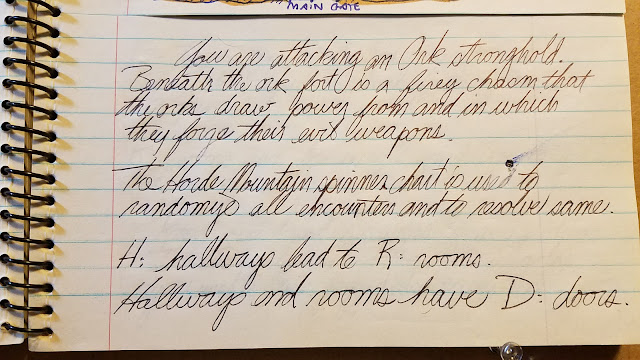 MAIN GATE
You are attacking an Ork stronghold.
Beneath the ork fort is a firey chasm that
the orks draw power from and in which
they forge their evil weapons.
The Horde Mountain spinner chart is used to
randomye all encounters and to resolve same.
H: hallways lead to R: rooms.
Hallways and rooms have D: doors.